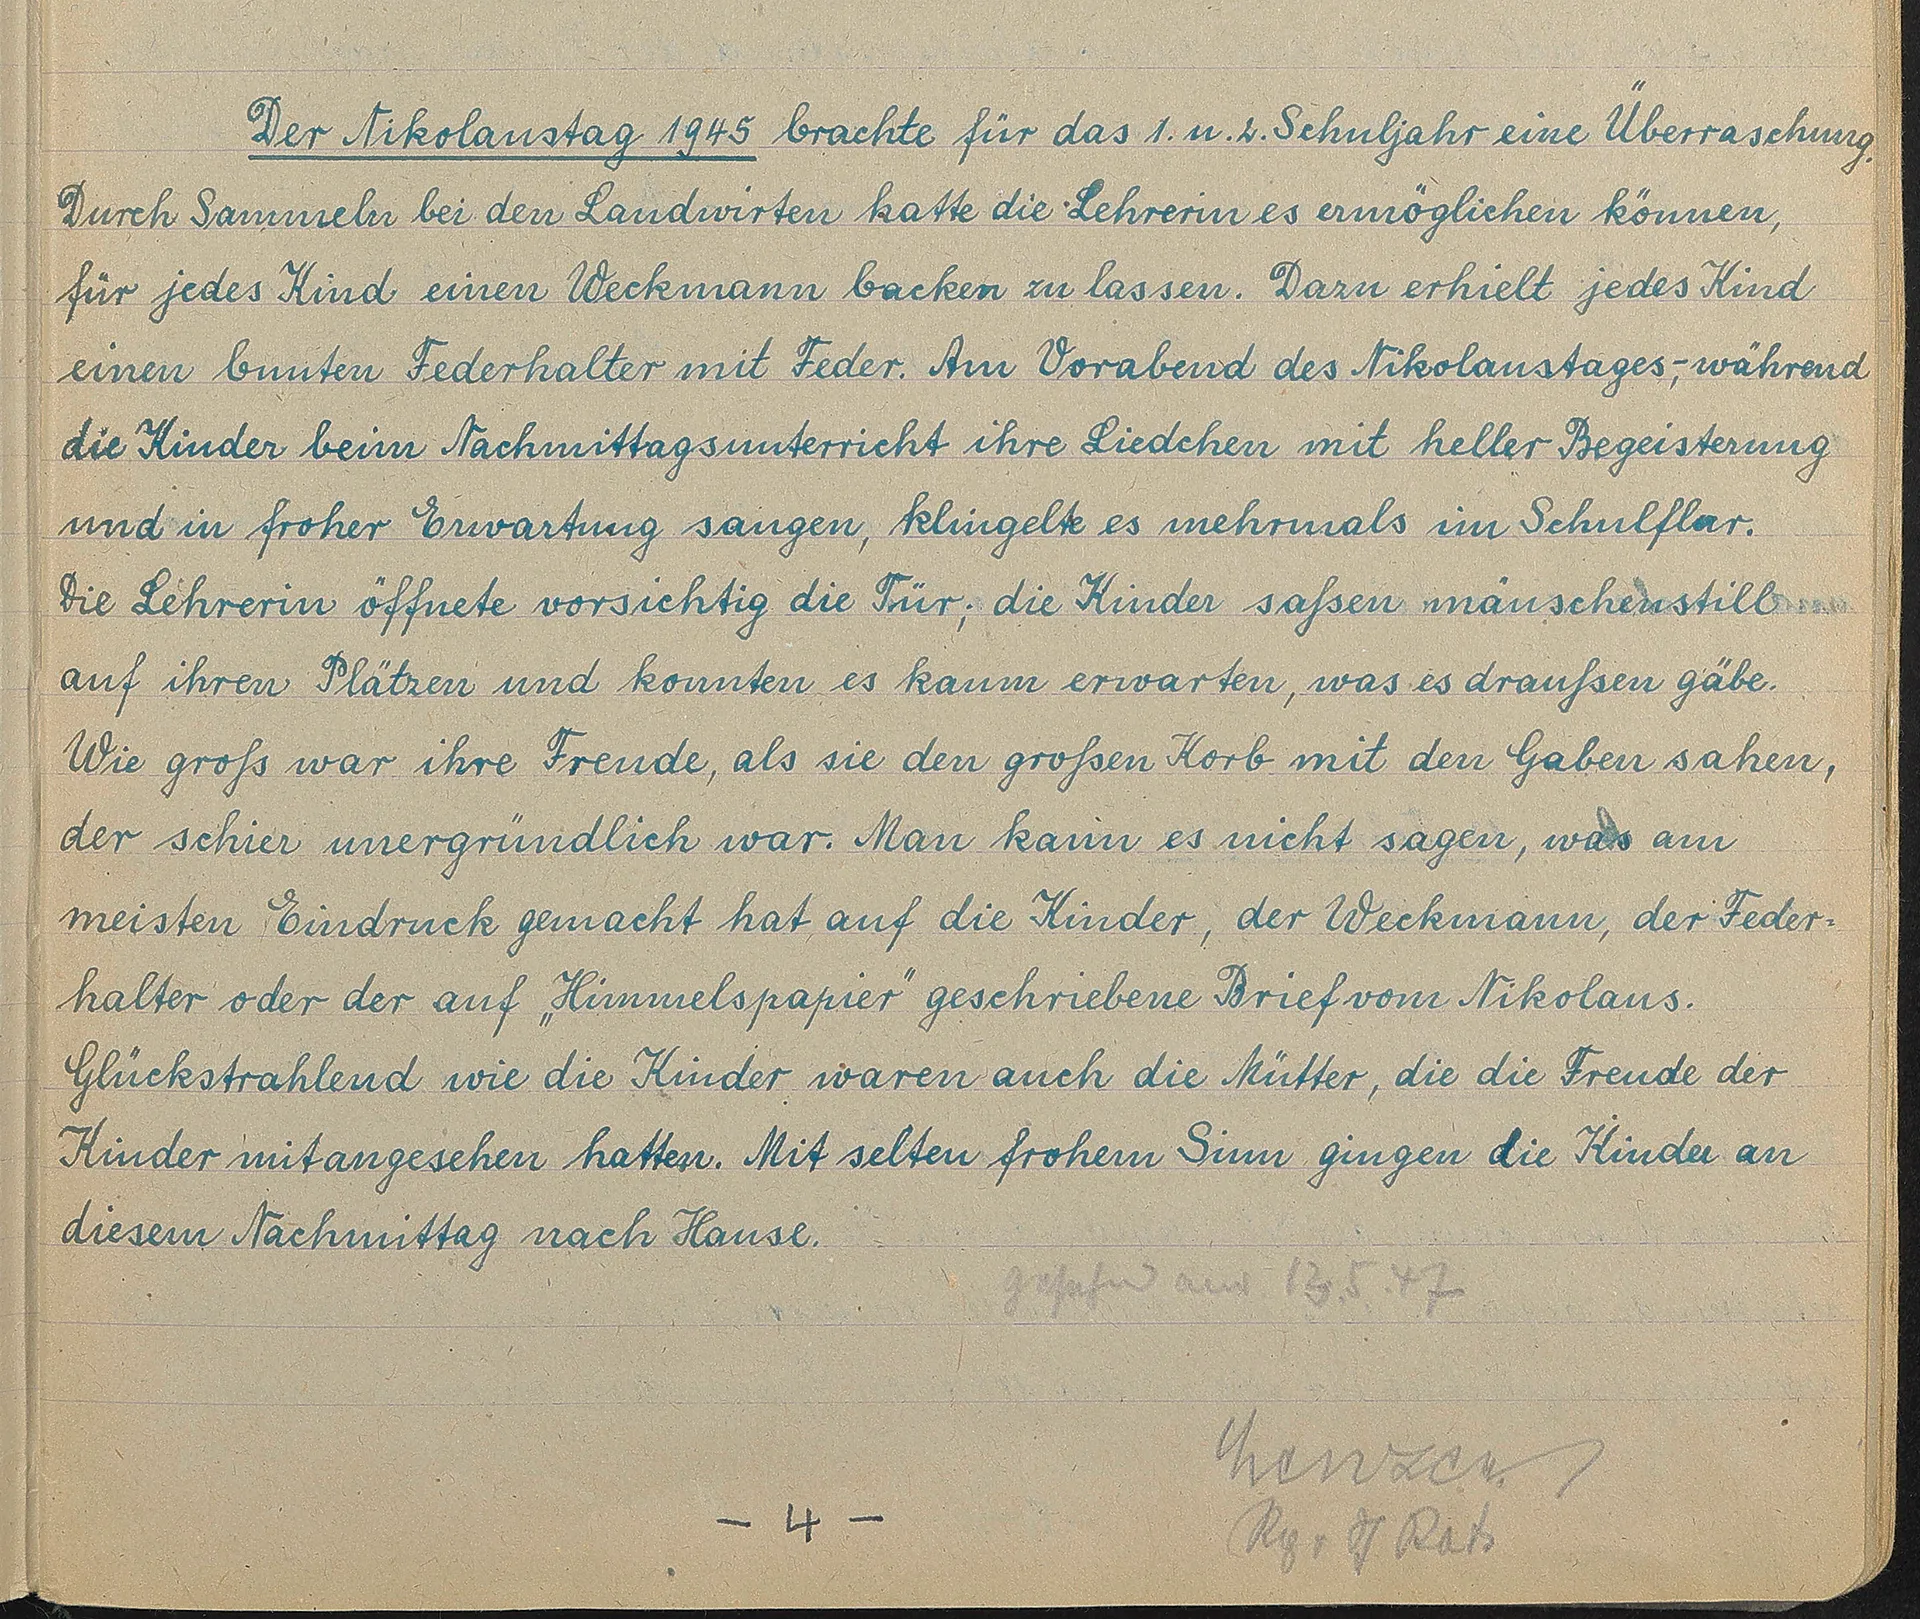 Der Nikolaustag 1945 brachte für das 1. u. 2. Schuljahr eine Überraschung.
Durch Sammeln bei den Landwirten hatte die Lehrerin es ermöglichen können,
für jedes Kind einen Weckmann backen zu lassen. Dazu erhielt jedes Kind
einen bunten Federhalter mit Feder. Am Vorabend des Nikolaustages,- während
die Kinder beim Nachmittagsunterricht ihre Liedchen mit heller Begeisterung
und in froher Erwartung sangen, klingelte es mehrmals im Schulflur.
Die Lehrerin öffnete vorsichtig die Tür; die Kinder saßen mäuschenstill
auf ihren Plätzen und konnten es kaum erwarten, was es draußen gäbe.
Wie groß war ihre Freude, als sie den großen Korb mit den Gaben sahen,
der schier unergründlich war. Man kann es nicht sagen, was am
meisten Eindruck gemacht hat auf die Kinder, der Weckmann, der Feder=
halter oder der auf „Himmelspapier" geschriebene Brief vom Nikolaus.
Glückstrahlend wie die Kinder waren auch die Mütter, die die Freude der
Kinder mitangesehen hatten. Mit selten frohem Sinn gingen die Kinder an
diesem Nachmittag nach Hause.
gesehen am 13.5.47
- 4 -